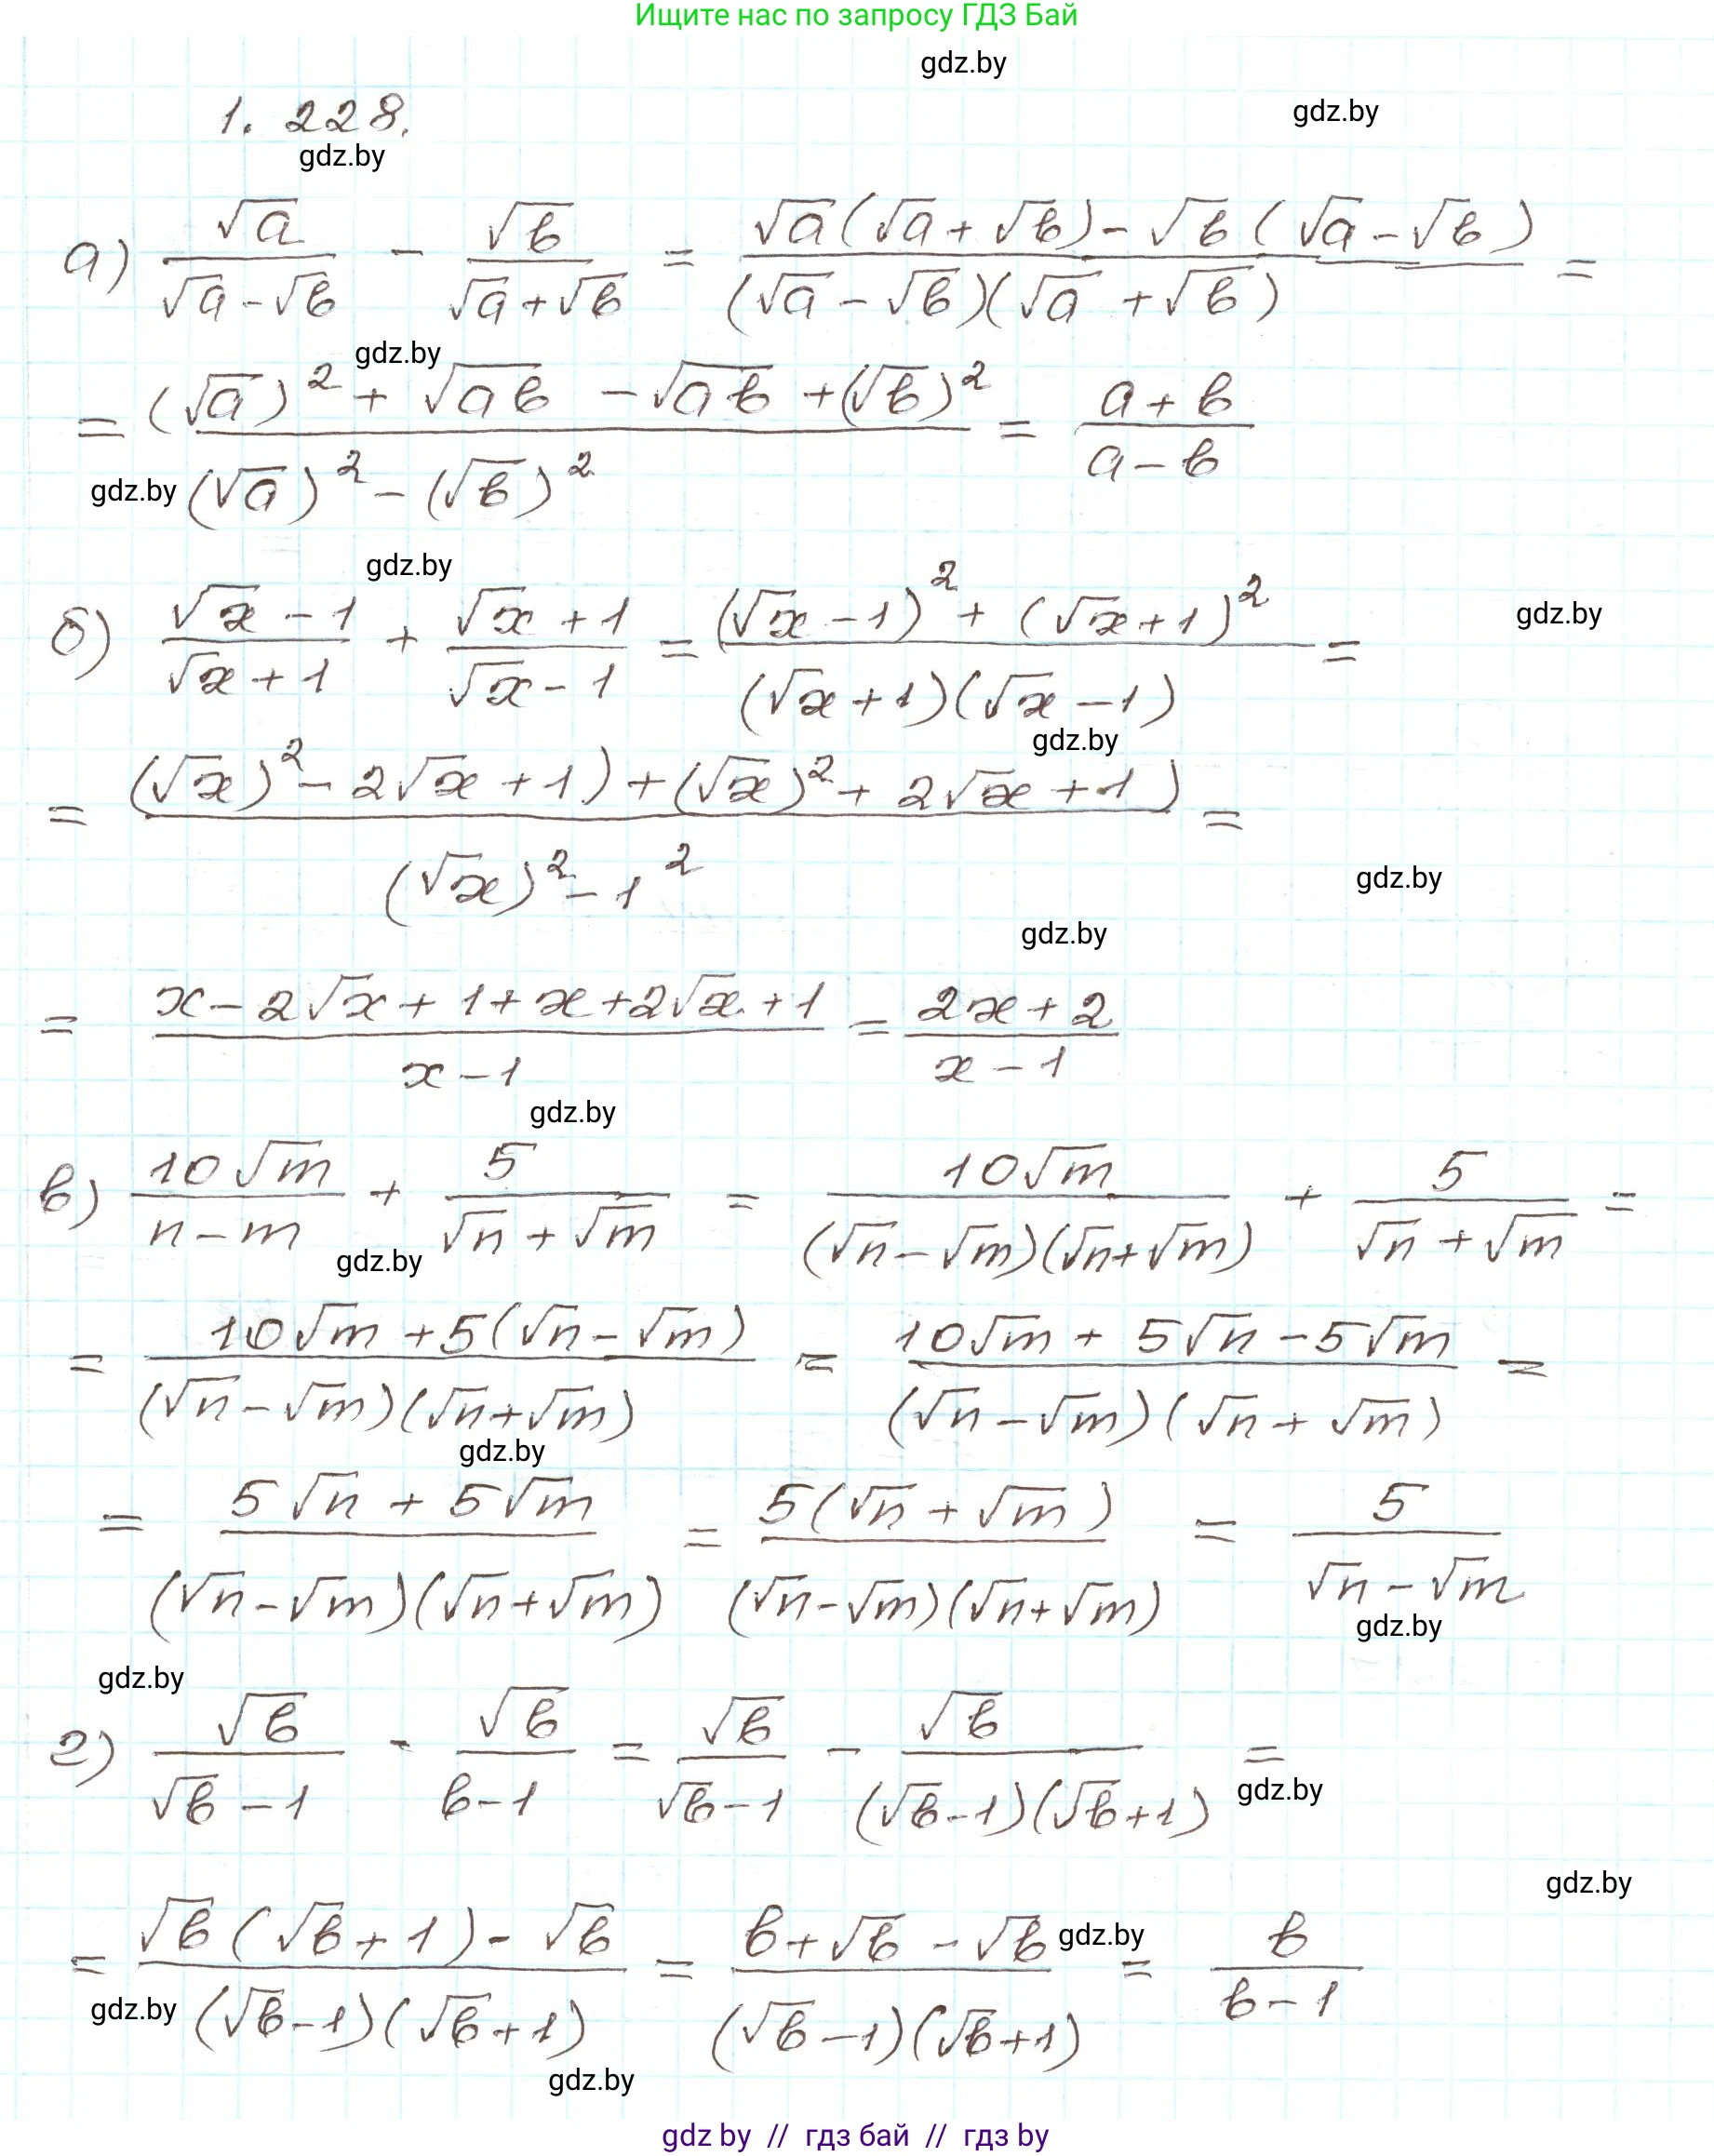 Ищите нас по запросу ГДЗ Бай
gdz.by
gdz.by
1. 228.
gdz.by
а) √a/(√a-√b) - √b/(√a+√b) = (√a(√a+√b)-√b(√a-√b))/((√a-√b)(√a+√b)) =
gdz.by
= ((√a)²+√ab-√ab+(√b)²)/((√a)²-(√b)²) = (a+b)/(a-b)
gdz.by
gdz.by
б) (√x-1)/(√x+1) + (√x+1)/(√x-1) = ((√x-1)²+(√x+1)²)/((√x+1)(√x-1)) =
gdz.by
gdz.by
= ((√x)²-2√x+1)+(√x)²+2√x+1)/((√x)²-1²) =
gdz.by
gdz.by
= (x-2√x+1+x+2√x+1)/(x-1) = (2x+2)/(x-1)
gdz.by
в) 10√m/(n-m) + 5/(√n+√m) = 10√m/((√n-√m)(√n+√m)) + 5/(√n+√m) =
gdz.by
= (10√m+5(√n-√m))/((√n-√m)(√n+√m)) = (10√m+5√n-5√m)/((√n-√m)(√n+√m)) =
gdz.by
= (5√n+5√m)/((√n-√m)(√n+√m)) = 5(√n+√m)/((√n-√m)(√n+√m)) = 5/(√n-√m)
gdz.by
gdz.by
г) √b/(√b-1) - √b/(b-1) = √b/(√b-1) - √b/((√b-1)(√b+1)) =
gdz.by
gdz.by
= (√b(√b+1)-√b)/((√b-1)(√b+1)) = (b+√b-√b)/((√b-1)(√b+1)) = b/(b-1)
gdz.by
gdz.by
gdz.by
gdz by // гдз бай // гдз by